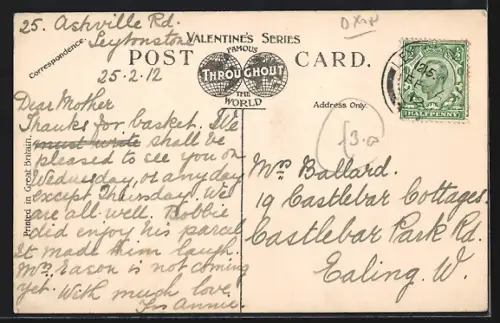 25. Ashville Rd.
Leytonstone
25.2.12
Correspondence.
VALENTINE'S SERIES
FAMOUS
THROUGHOUT
THE
WORLD
POST CARD.
Address Only.
HALFPENNY
Printed in Great Britain.
Dear Mother
Thanks for basket. We
must wrote shall be
pleased to see you on
Wednesday, or any day
except Thursday. We
are all well. Bobbie
did enjoy his parcel
It made him laugh.
Mrs Eason is not coming
yet. With much love
Annie.
Mrs Ballard.
19 Castlebar Cottages.
Castlebar Park Rd.
Ealing. W.